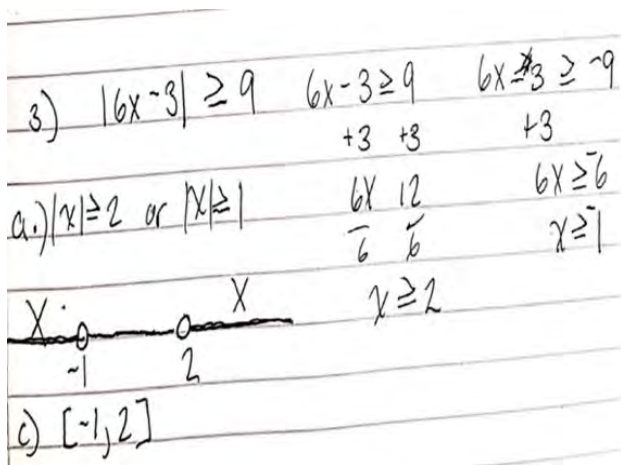 3) |6x-3| ≥ 9 6x-3≥9 6x-3 ≥ -9
+3 +3 +3
a.) |x|≥2 or |x|≥1 6x 12 6x≥-6
6 6 x≥-1
X X x≥2
-1 2
c) [-1,2]